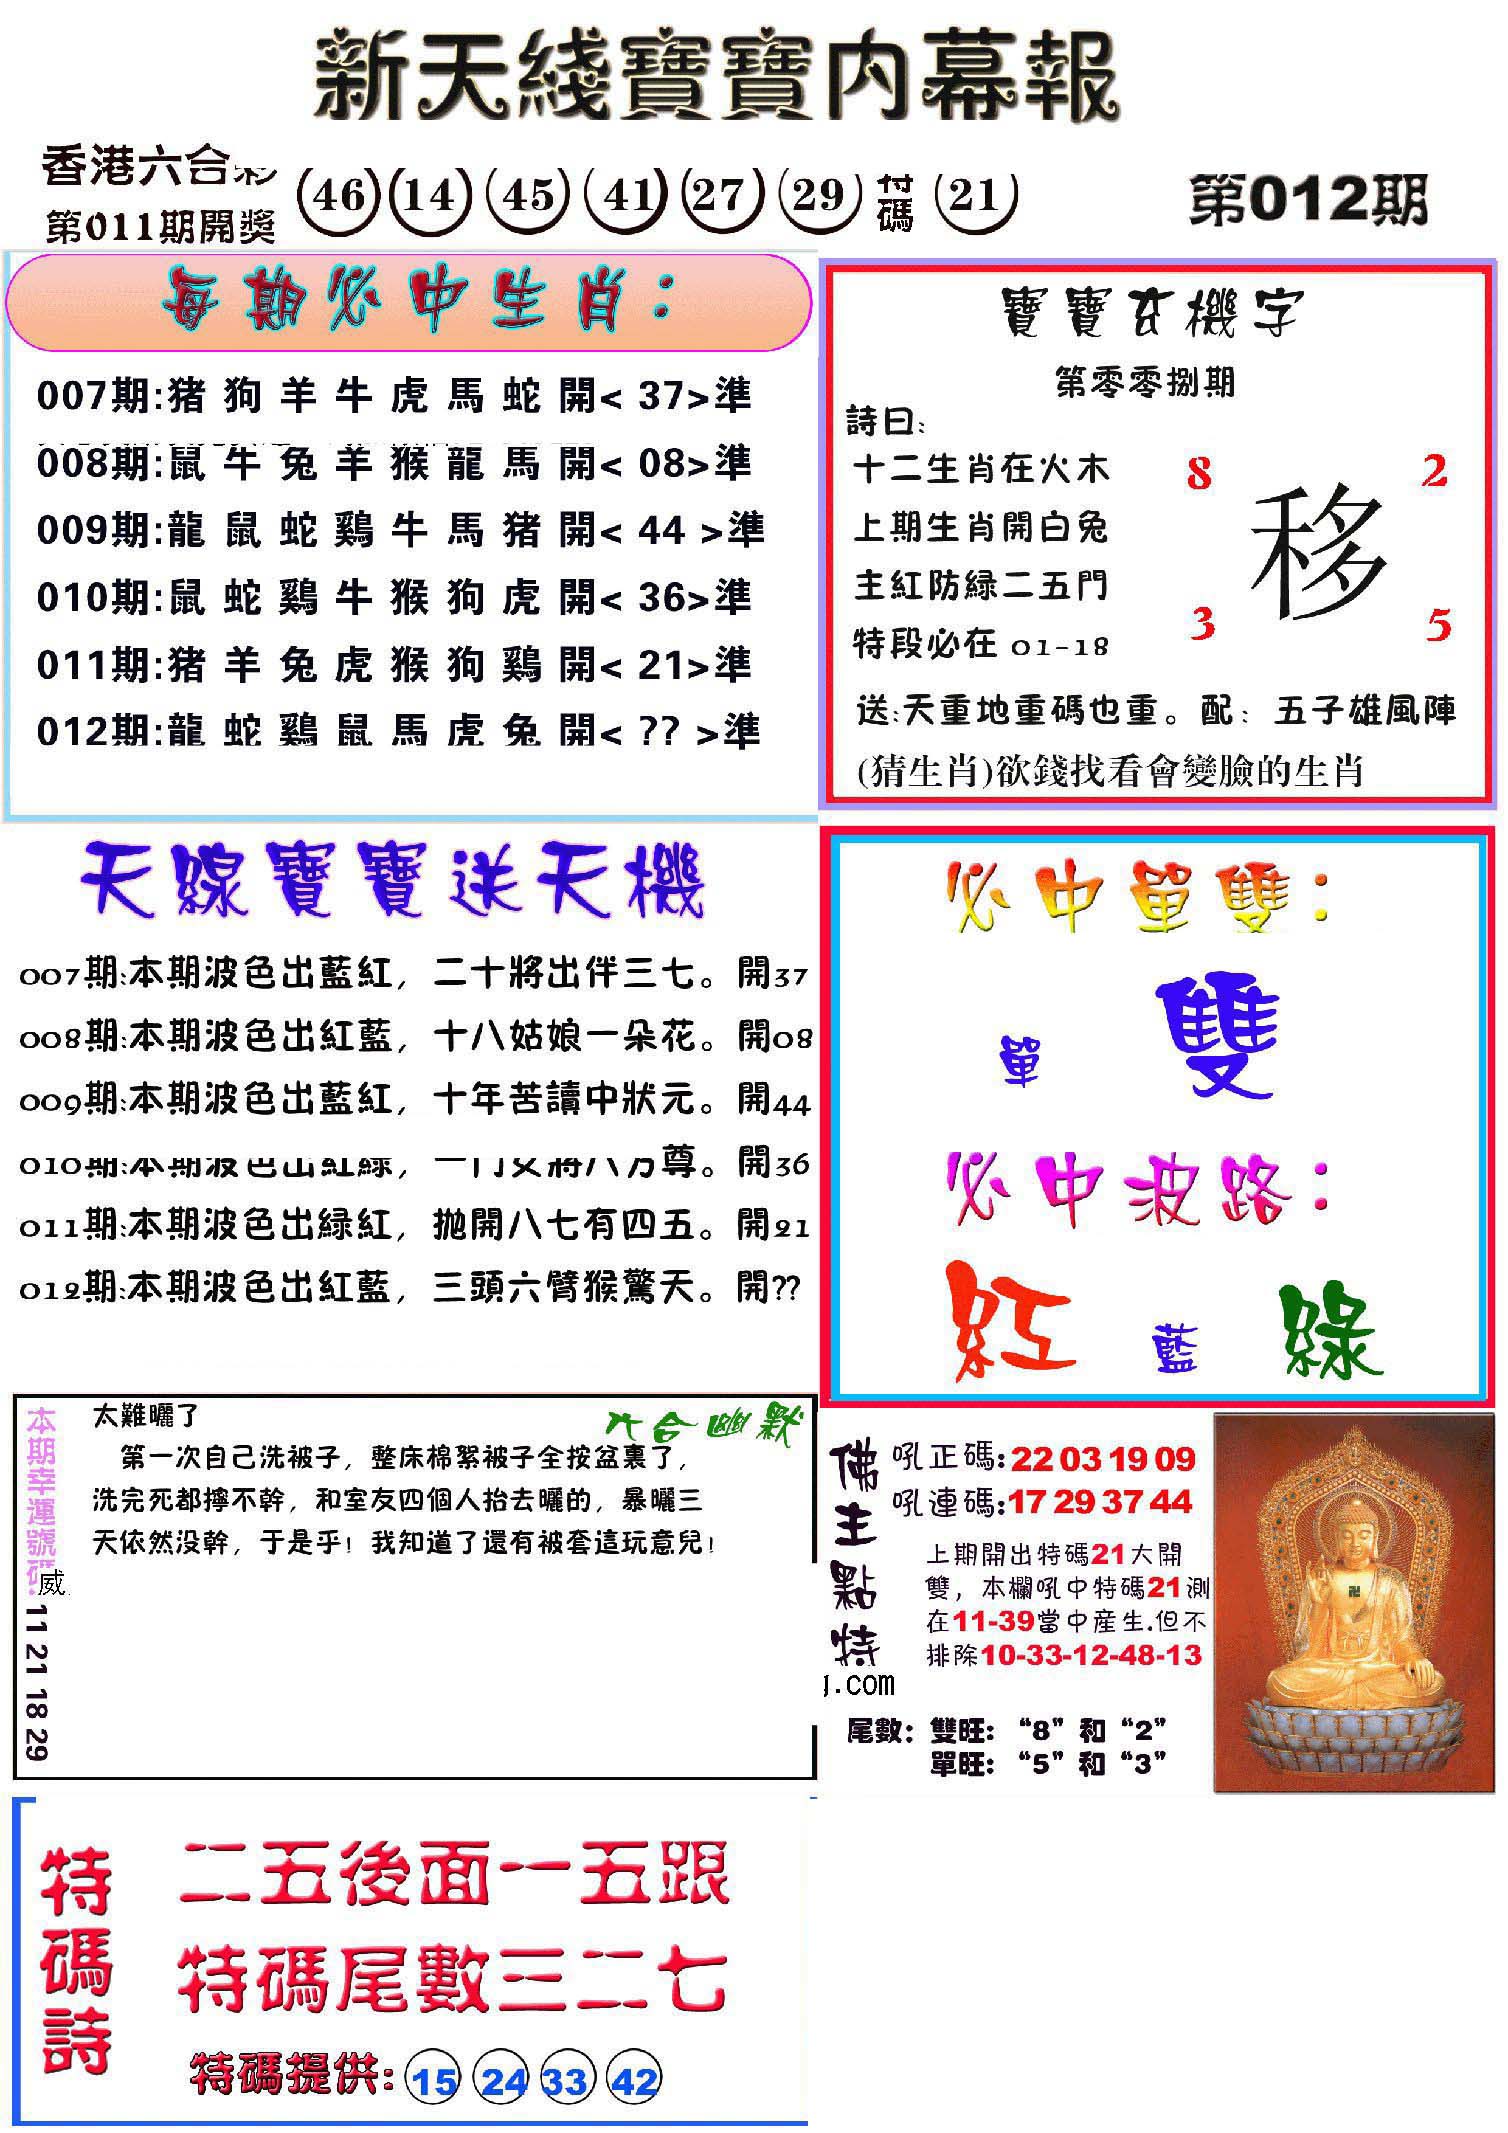 新天綫寶寶内幕報
香港六合彩
第011期開獎
46 14 45 41 27 29 特碼 21
第012期
每期必中生肖：
007期:猪 狗 羊 牛 虎 馬 蛇 開< 37>準
008期:鼠 牛 兔 羊 猴 龍 馬 開< 08>準
009期:龍 鼠 蛇 鷄 牛 馬 猪 開< 44 >準
010期:鼠 蛇 鷄 牛 猴 狗 虎 開< 36>準
011期:猪 羊 兔 虎 猴 狗 鷄 開< 21>準
012期:龍 蛇 鷄 鼠 馬 虎 兔 開< ?? >準
寶寶玄機字
第零零捌期
詩曰:
十二生肖在火木
上期生肖開白兔
主紅防緑二五門
特段必在 01-18
8 2
移
3 5
送:天重地重碼也重。配：五子雄風陣
(猜生肖)欲錢找看會變臉的生肖
天線寶寶送天機
007期:本期波色出藍紅，二十將出伴三七。開37
008期:本期波色出紅藍，十八姑娘一朵花。開08
009期:本期波色出藍紅，十年苦讀中狀元。開44
010期:本期波色出紅緑，一門女將八方尊。開36
011期:本期波色出緑紅，抛開八七有四五。開21
012期:本期波色出紅藍，三頭六臂猴驚天。開??
必中單雙：
單 雙
必中波路：
紅 藍 緑
本期幸運號碼:
威
11 21 18 29
六合幽默
太難曬了
第一次自己洗被子，整床棉絮被子全按盆裏了，
洗完死都擰不幹，和室友四個人抬去曬的，暴曬三
天依然没幹，于是乎！我知道了還有被套這玩意兒！
佛主點特
吼正碼:22 03 19 09
吼連碼:17 29 37 44
上期開出特碼21大開
雙，本欄吼中特碼21測
在11-39當中産生.但不
排除10-33-12-48-13
.com
尾數：雙旺：“8”和“2”
單旺：“5”和“3”
特碼詩
二五後面一五跟
特碼尾數三二七
特碼提供: 15 24 33 42